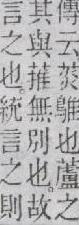 傳云菼鵻也蘆之
其與蓷無別也故
言之也統言之則